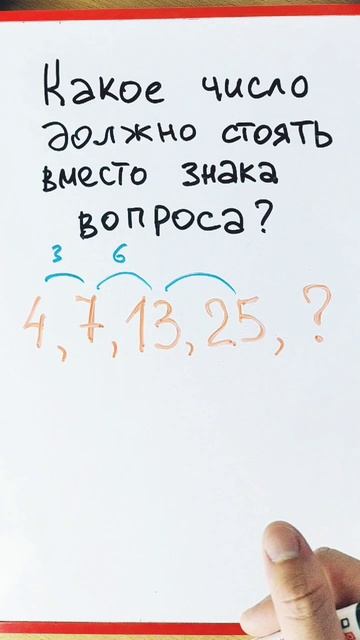 Какое число
должно стоять
вместо знака
вопроса?
3 6
4, 7, 13, 25, ?